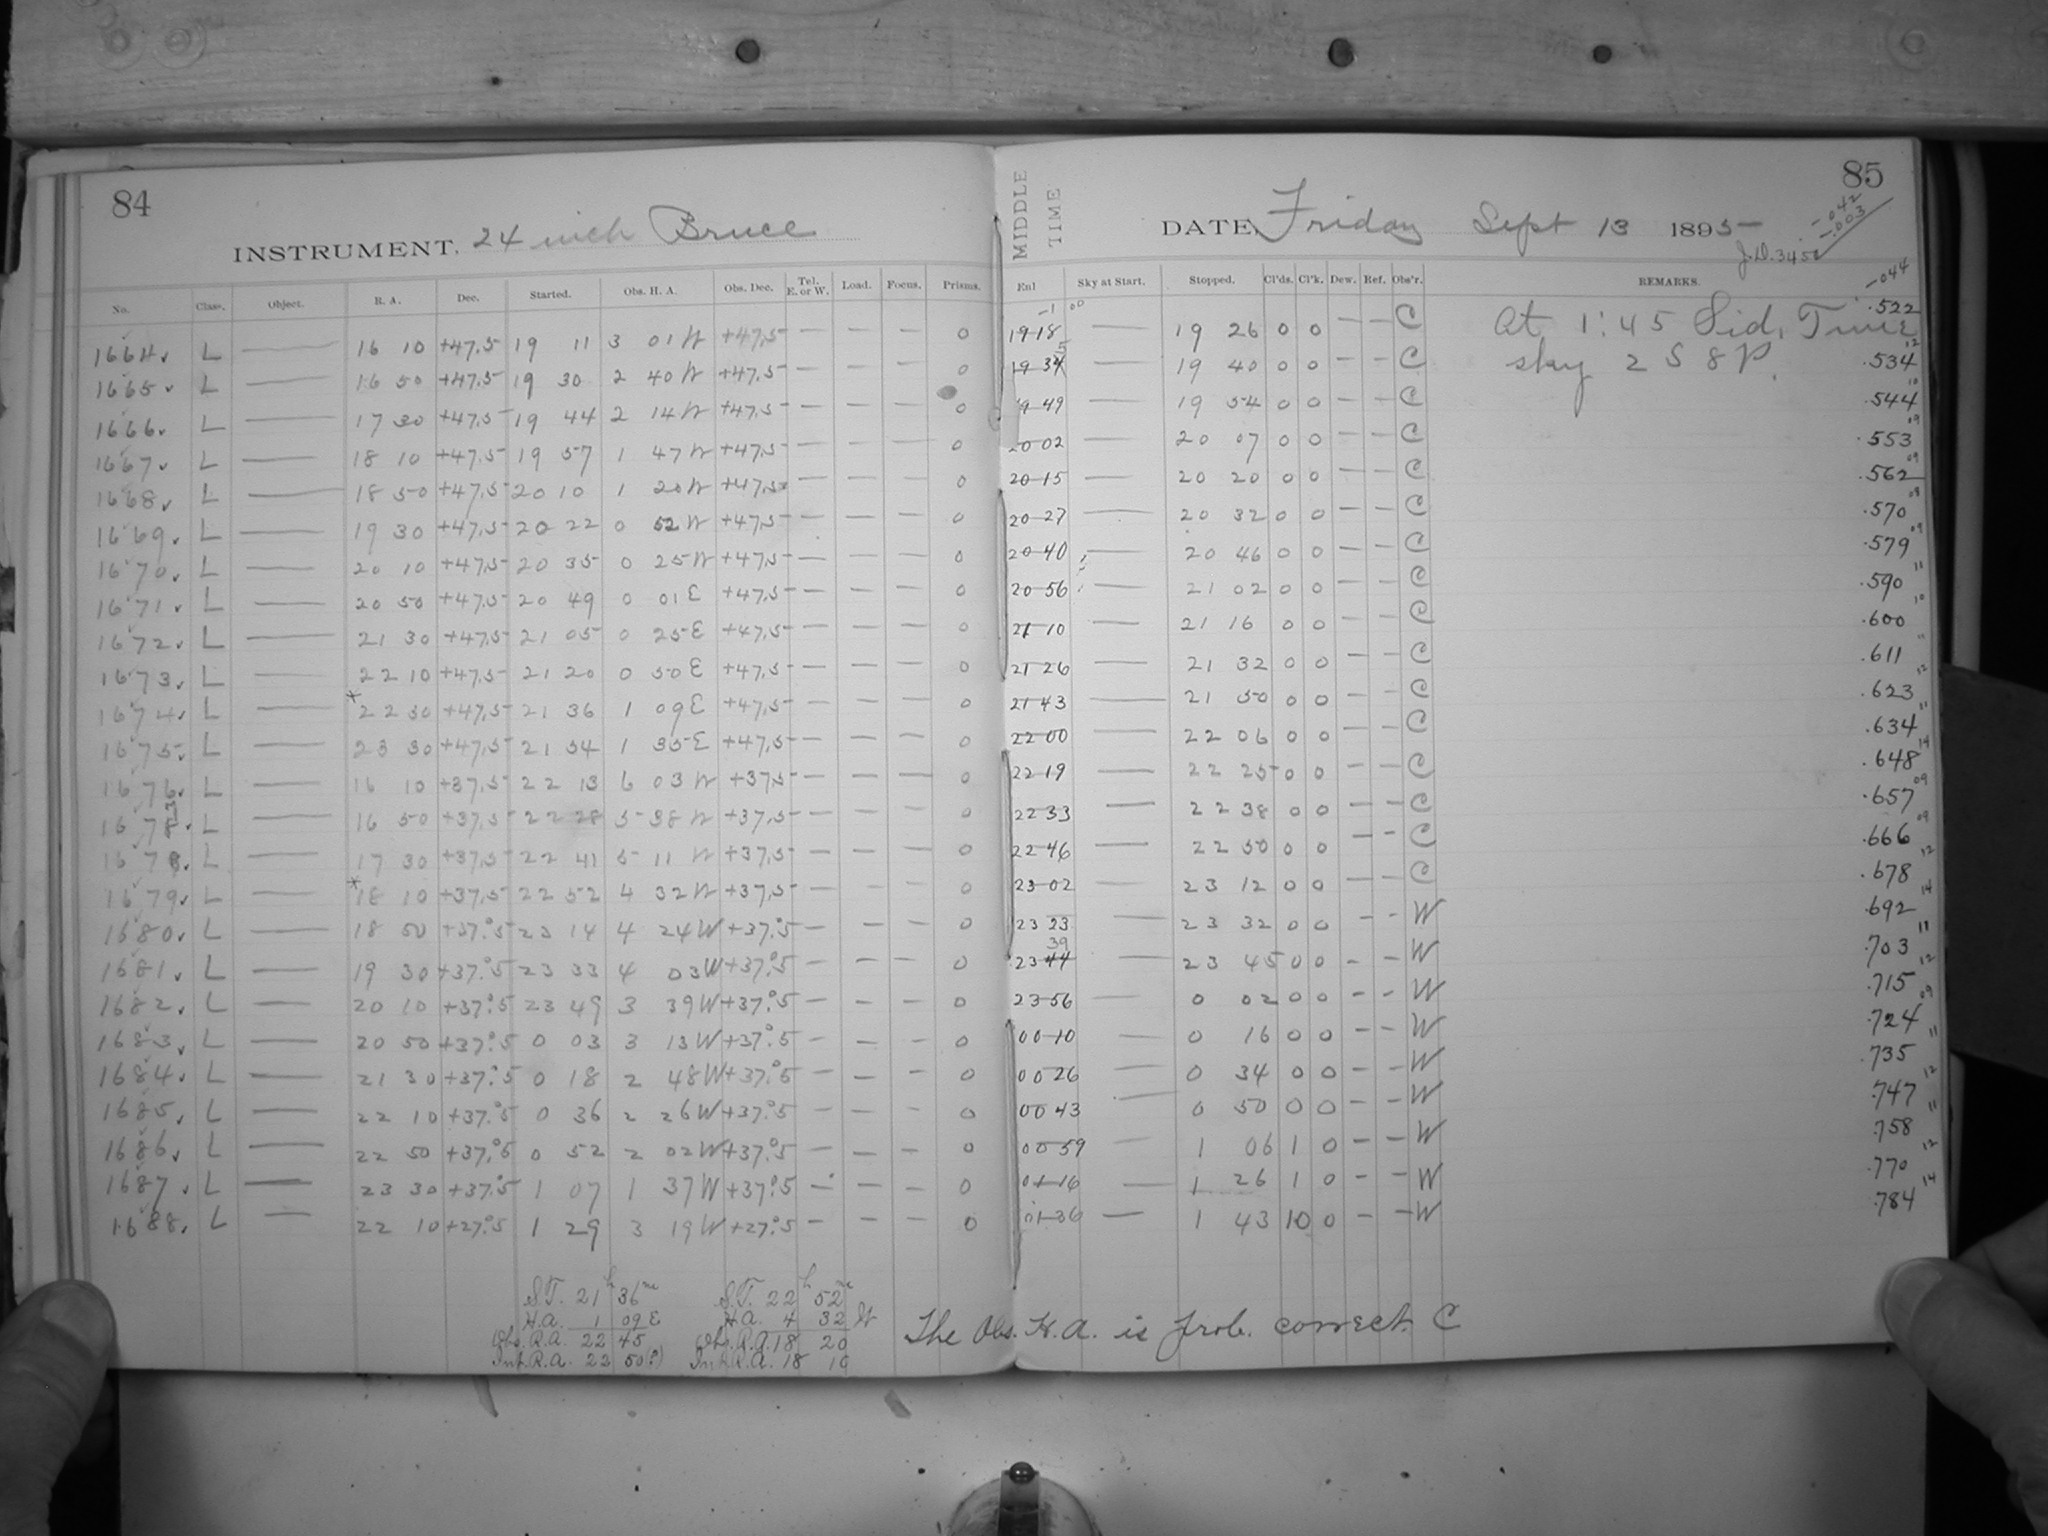 84
INSTRUMENT. 24 inch Bruce
MIDDLE TIME
DATE, Friday Sept 13 1895
85
-.042
-.003
J.D. 345
-.044
No. Class. Object. R. A. Dec. Started. Obs. H. A. Obs. Dec. Tel. E. or W. Load. Focus. Prisms. Enl Sky at Start. Stopped. Cl'ds. Cl'k. Dew. Ref. Obs'r. REMARKS.
-1 00
1664. L — 16 10 +47.5 19 11 3 01 W +47.5 — — — 0 19 18 — 19 26 0 0 — — C At 1:45 Sid. Time .522
1665. L — 16 50 +47.5 19 30 2 40 W +47.5 — — — 0 19 34 5 — 19 40 0 0 — — C sky 2 S 8 P. .534 12
1666. L — 17 30 +47.5 19 44 2 14 W +47.5 — — — 0 19 49 — 19 54 0 0 — — C .544 10
1667. L — 18 10 +47.5 19 57 1 47 W +47.5 — — — 0 20 02 — 20 07 0 0 — — C .553 09
1668. L — 18 50 +47.5 20 10 1 20 W +47.5 — — — 0 20 15 — 20 20 0 0 — — C .562 09
1669. L — 19 30 +47.5 20 22 0 52 W +47.5 — — — 0 20 27 — 20 32 0 0 — — C .570 08
1670. L — 20 10 +47.5 20 35 0 25 W +47.5 — — — 0 20 40 — 20 46 0 0 — — C .579 09
1671. L — 20 50 +47.5 20 49 0 01 E +47.5 — — — 0 20 56 — 21 02 0 0 — — C .590 11
1672. L — 21 30 +47.5 21 05 0 25 E +47.5 — — — 0 21 10 — 21 16 0 0 — — C .600 10
1673. L — 22 10 +47.5 21 20 0 50 E +47.5 — — — 0 21 26 — 21 32 0 0 — — C .611 11
1674. L — * 22 50 +47.5 21 36 1 09 E +47.5 — — — 0 21 43 — 21 50 0 0 — — C .623 12
1675. L — 23 30 +47.5 21 54 1 35 E +47.5 — — — 0 22 00 — 22 06 0 0 — — C .634 11
1676. L — 16 10 +37.5 22 13 6 03 W +37.5 — — — 0 22 19 — 22 25 0 0 — — C .648 14
1678. L — 16 50 +37.5 22 28 5 38 W +37.5 — — — 0 22 33 — 22 38 0 0 — — C .657 09
1678. L — 17 30 +37.5 22 41 5 11 W +37.5 — — — 0 22 46 22 50 0 0 — — C .666 09
1679. L — * 18 10 +37.5 22 52 4 32 W +37.5 — — — 0 23 02 — 23 12 0 0 — — C .678 12
1680. L — 18 50 +37.°5 23 14 4 24 W +37.°5 — — — 0 23 23 — 23 32 0 0 — — W .692 14
1681. L — 19 30 +37.°5 23 33 4 03 W +37.°5 — — — 0 23 44 39 — 23 45 0 0 — — W .703 11
1682. L — 20 10 +37.°5 23 49 3 39 W +37.°5 — — — 0 23 56 — 0 02 0 0 — — W .715 12
1683. L — 20 50 +37.°5 0 03 3 13 W +37.°5 — — — 0 00 10 — 0 16 0 0 — — W .724 09
1684. L — 21 30 +37.°5 0 18 2 48 W +37.°5 — — — 0 00 26 — 0 34 0 0 — — W .735 11
1685. L — 22 10 +37.°5 0 36 2 26 W +37.°5 — — — 0 00 43 — 0 50 0 0 — — W .747 12
1686. L — 22 50 +37.°5 0 52 2 02 W +37.°5 — — — 0 00 59 — 1 06 1 0 — — W .758 11
1687. L — 23 30 +37.°5 1 07 1 37 W +37.°5 — — — 0 01 16 — 1 26 1 0 — — W .770 12
1688. L — 22 10 +27.°5 1 29 3 19 W +27.°5 — — — 0 01 36 — 1 43 10 0 — — W .784 14
S.T. 21h 36m S.T. 22h 52m
H.A. 1 09 E H.A. 4 32 W
Obs. R.A. 22 45 Obs. R.A. 18 20
Int. R.A. 22 50(?) Int. R.A. 18 10
The Obs. H.A. is prob. correct. C